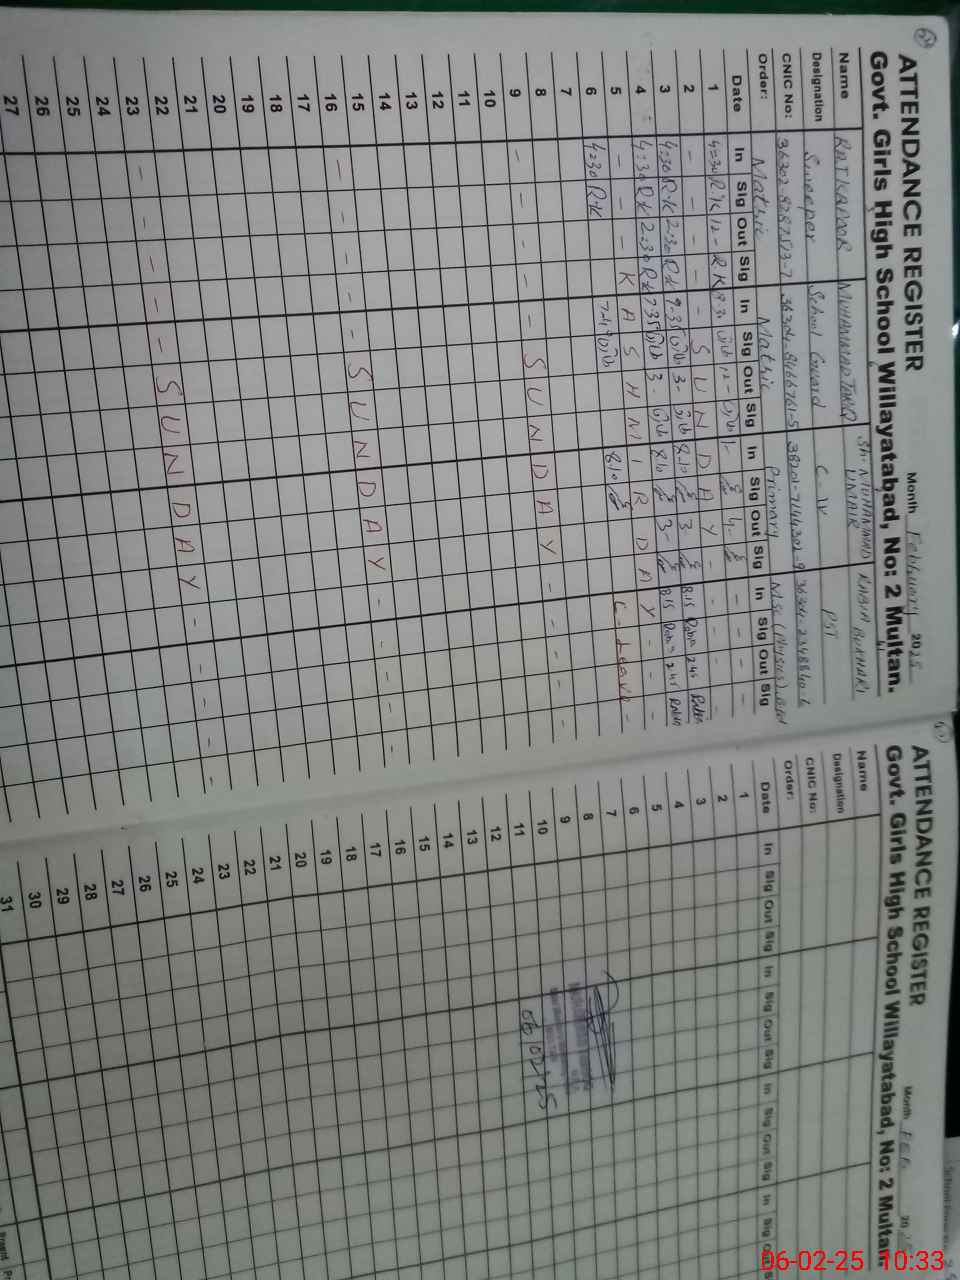 ATTENDANCE REGISTER
Govt. Girls High School Willayatabad, No: 2 Multan.
Month February 2025
Name RAJ KAPOOR MUHAMMAD TARIQ Sh. MUHAMMAD UMAIR RABIA BUKHARI
Designation Sweeper School Guard C-IV PST
CNIC No: 36304-8466761-5 38201-7144302-9
Order: Mathic Mathic Primary MSc (Physics) B.Ed
Date In Sig Out Sig In Sig Out Sig In Sig Out Sig In Sig Out Sig
1 4:30 R.K 12- R.K
2 - - - - - S U N D A Y - - - - -
3 4:30 R.K 2:30 R.K 9:35 3- 8:10 3- 8:15 Rabia 2:45 Rabia
4 4:30 R.K 2:30 R.K 7:35 3- 8:10 3- 8:15 Rabia 2:45 Rabia
5 - - - K A S H M I R D A Y - - -
6 4:30 R.K 8:10 C-Leave -
7
8
9 - - - - - S U N D A Y - - - - -
10
11
12
13
14
15
16 - - - - - S U N D A Y - - - - -
17
18
19
20
21
22
23 - - - - - S U N D A Y - - - - -
24
25
26
27
ATTENDANCE REGISTER
Govt. Girls High School Willayatabad, No: 2 Multan.
Month Feb 20
Name
Designation
CNIC No:
Order:
Date In Sig Out Sig In Sig Out Sig In Sig Out Sig In Sig
1
2
3
4
5
6
7
8
9
10
11
12
13
14
15
16
17
18
19
20
21
22
23
24
25
26
27
28
29
30
31
06/02/25
06-02-25 10:33